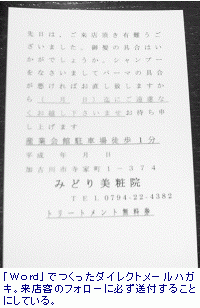 先日は、ご来店頂き有難うご
ざいました。御髪の具合はい
かがでしょうか。シャンプー
をなさいましてパーマの具合
が悪ければお直し致しますか
ら 月 日迄にご遠慮な
くお越し下さいませお待ち申
し上げます
産業会館駐車場徒歩1分
平成 年 月 日
加古川市寺家町1-374
みどり美粧院
TEL 0794-22-4382
トリートメント無料券
「Word」でつくったダイレクトメールハガ
キ。来店客のフォローに必ず送付すること
にしている。